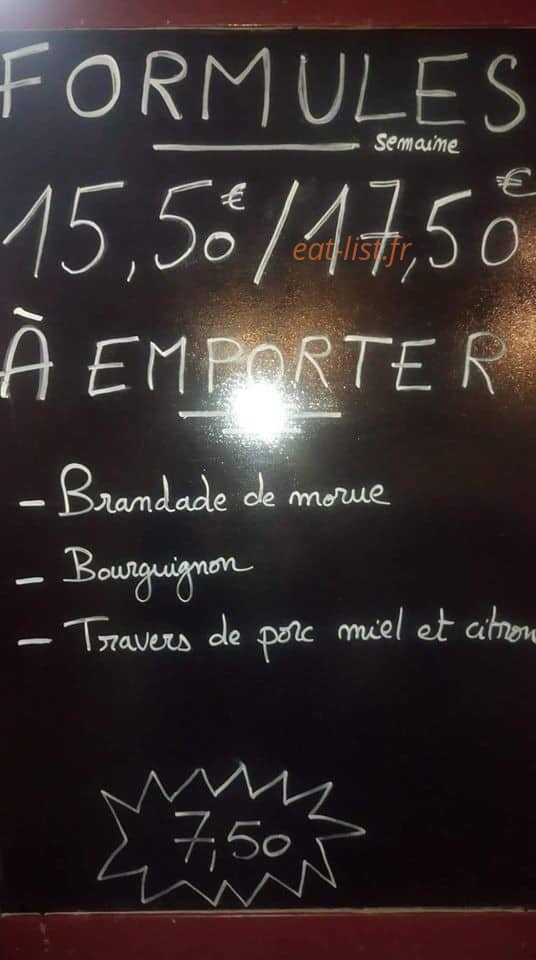 FORMULES
semaine
15,50€/17,50€
eat-list.fr
À EMPORTER
- Brandade de morue
- Bourguignon
- Travers de porc miel et citron
7,50